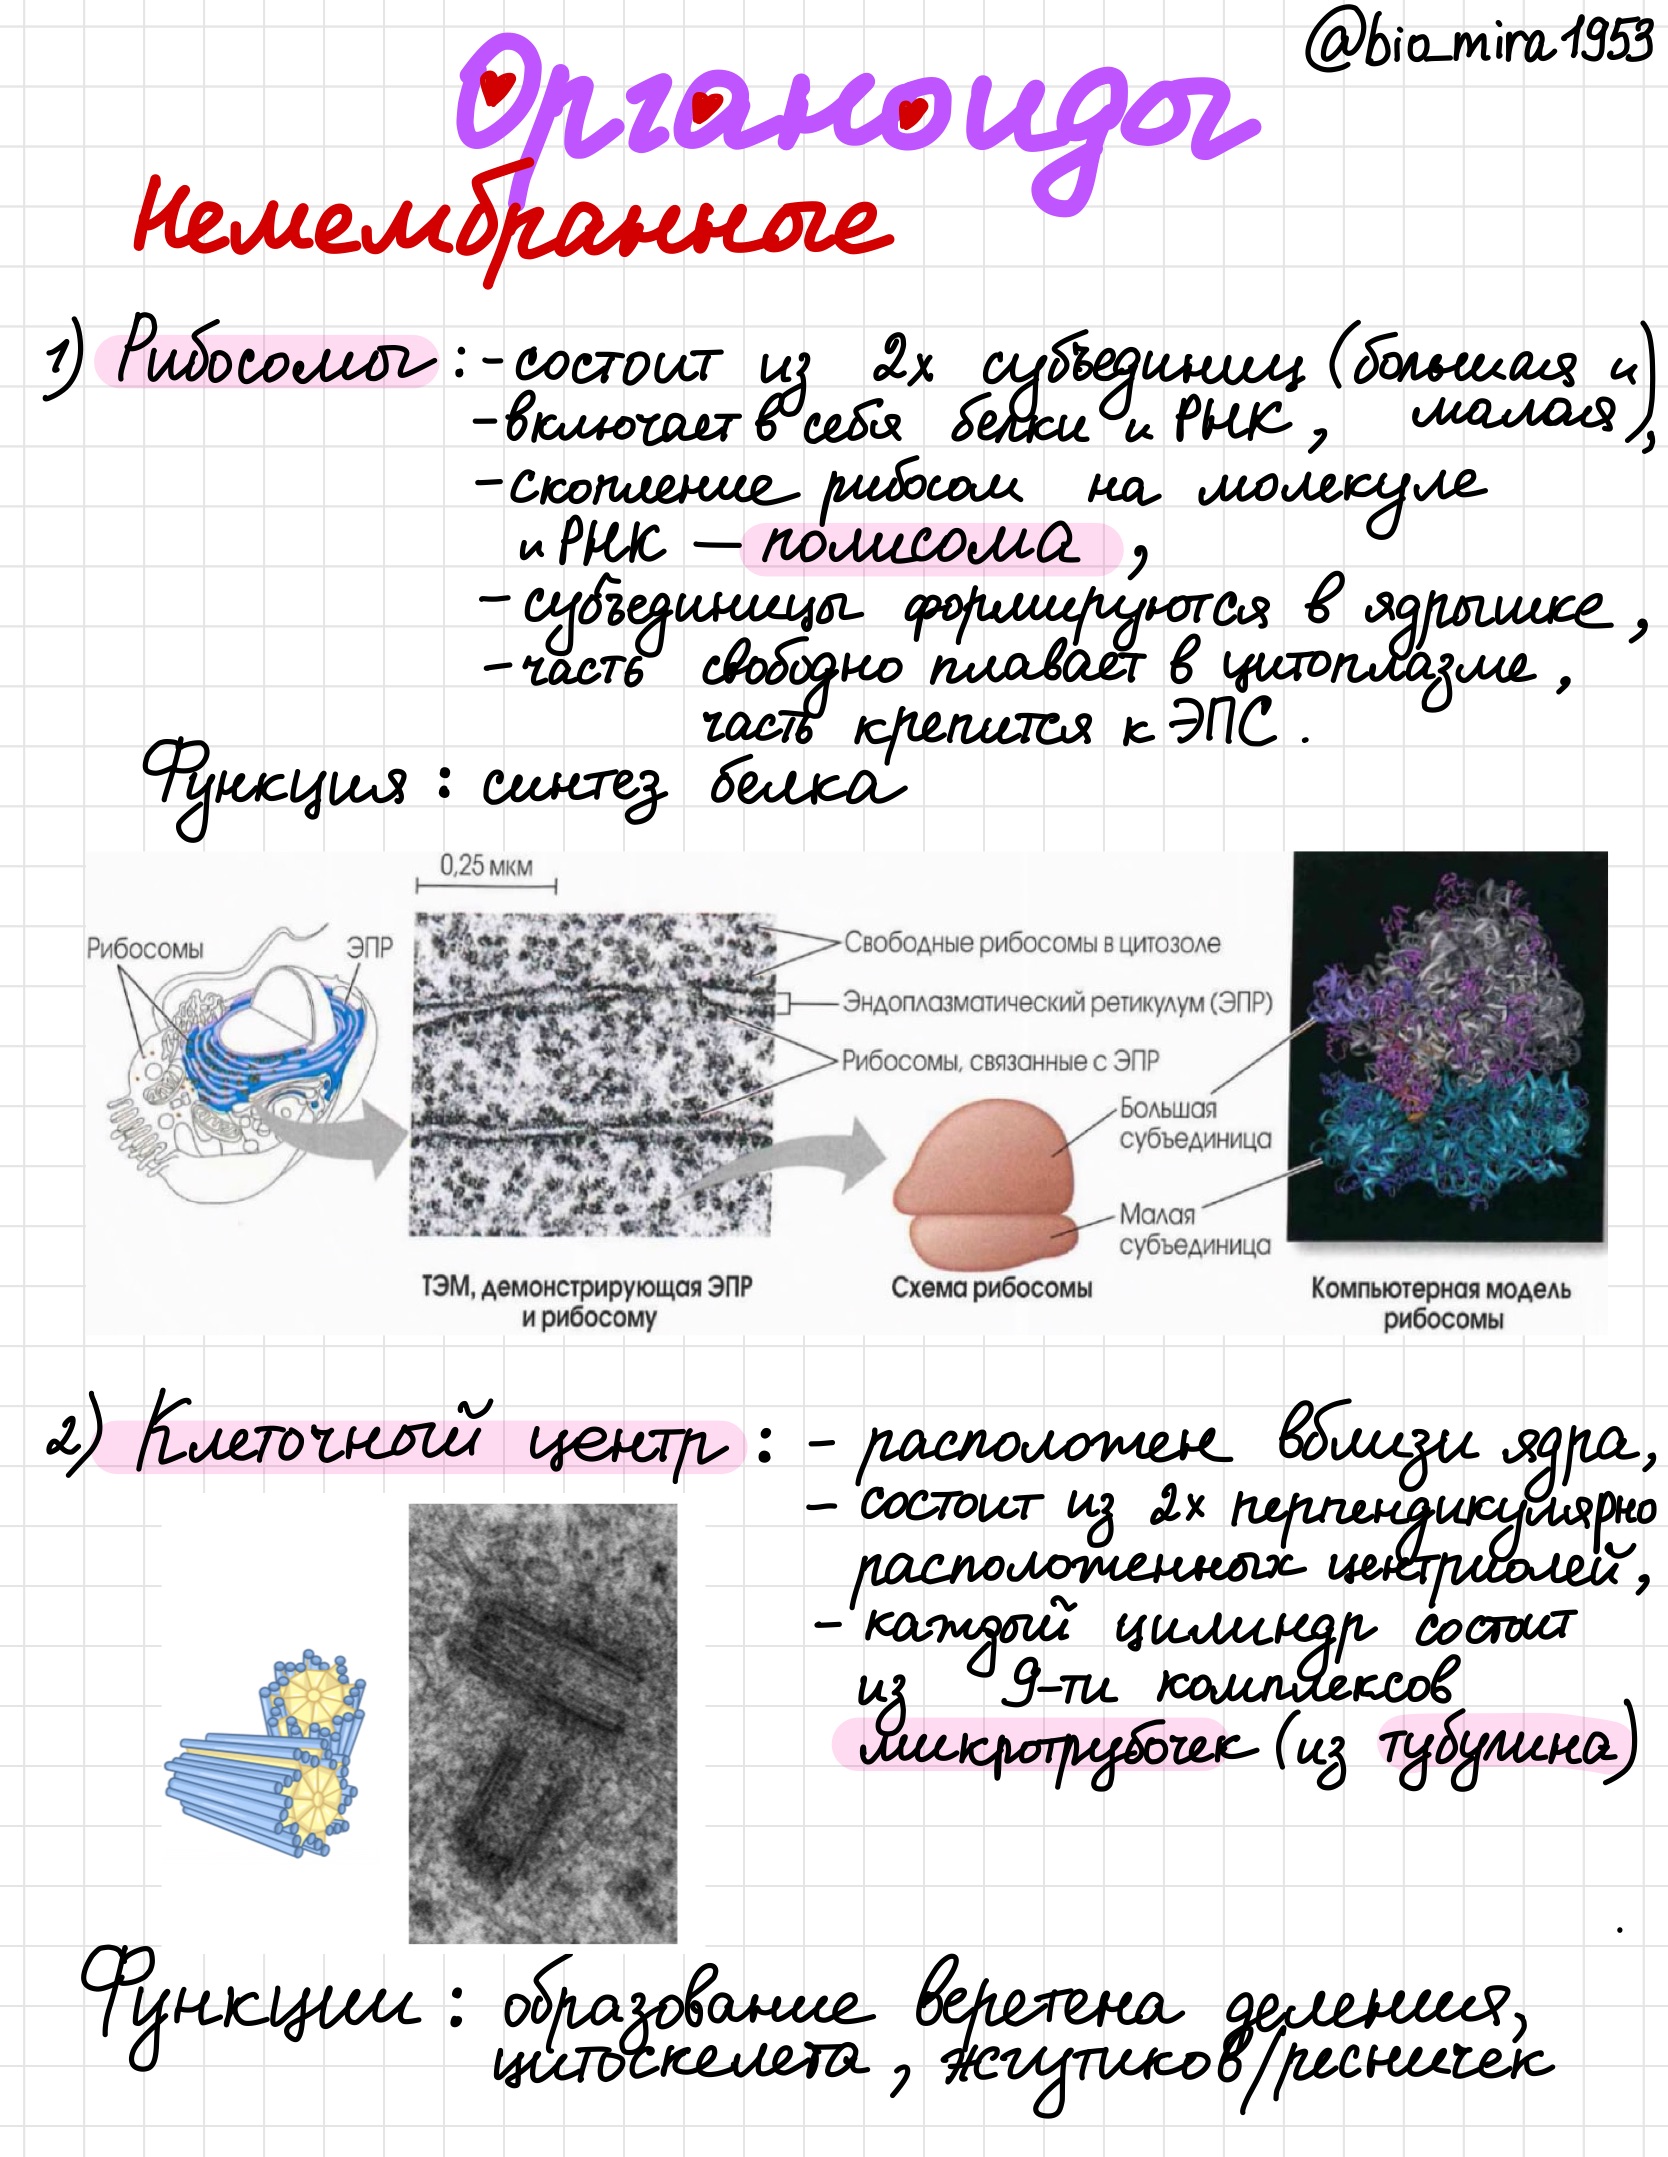 @bio_mira1953
Органоиды
Немембранные
1) Рибосомы: - состоит из 2х субъединиц (большая и
малая),
- включает в себя белки и РНК,
- скопление рибосом на молекуле
и РНК — полисома,
- субъединицы формируются в ядрышке,
- часть свободно плавает в цитоплазме,
часть крепится к ЭПС.
Функция: синтез белка
0,25 мкм
Рибосомы
ЭПР
Свободные рибосомы в цитозоле
Эндоплазматический ретикулум (ЭПР)
Рибосомы, связанные с ЭПР
Большая
субъединица
Малая
субъединица
ТЭМ, демонстрирующая ЭПР
и рибосому
Схема рибосомы
Компьютерная модель
рибосомы
2) Клеточный центр: - расположен вблизи ядра,
- состоит из 2х перпендикулярно
расположенных центриолей,
- каждый цилиндр состоит
из 9-ти комплексов
микротрубочек (из тубулина)
Функции: образование веретена деления,
цитоскелета, жгутиков/ресничек